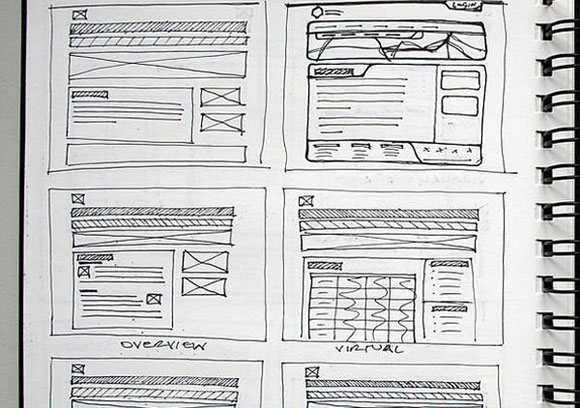 LOGIN
OVERVIEW
VIRTUAL